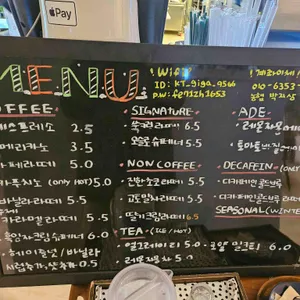 Pay
MENU
! Wifi
ID: KT_giga_9566
P.W: fe71zh3653
! 계좌이체
010-6353-
농협
COFFEE
에스프레소 2.5
아메리카노 3.5
카페라떼 5.0
카푸치노 (only HOT) 5.0
바닐라라떼 5.5
카라멜라떼 5.5
흑임자크림슈페너 6.0
헤이즐넛 / 바닐라
시럽추가, 샷추가 0.5
SIGNATURE
쑥크림라떼 6.5
5.5
NON COFFEE
진한초코라떼 5.5
고구마라떼 5.5
딸기크림라떼 6.5
TEA (ICE / HOT)
얼그레이티 5.0
로얄밀크티 6.0
레몬차 5.0
ADE
레몬자몽에이드
DECAFEIN (ONLY
디카페인콜드브루
디카페인콜드브루라떼
SEASONAL (WINTER